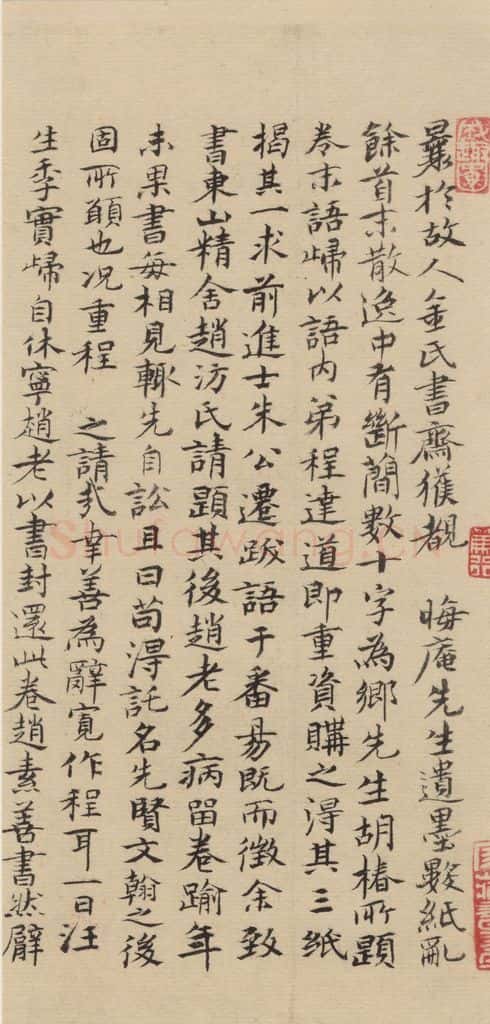 曩於故人金氏書齋獲覩 晦庵先生遺墨數紙亂
餘首末散逸中有斷簡數十字為鄉先生胡椿所題
卷末語歸以語內弟程達道即重資購之得其三紙
揭其一求前進士朱公遷跋語于番昜既而徵余致
書東山精舍趙汸氏請題其後趙老多病留卷踰年
未果書每相見輒先自訟且曰苟得託名先賢文翰之後
固所願也况重程 之請哉幸善為辭寬作程耳一日汪
生季實歸自休寧趙老以書封還此卷趙素善書然癖
Shufawang.cn